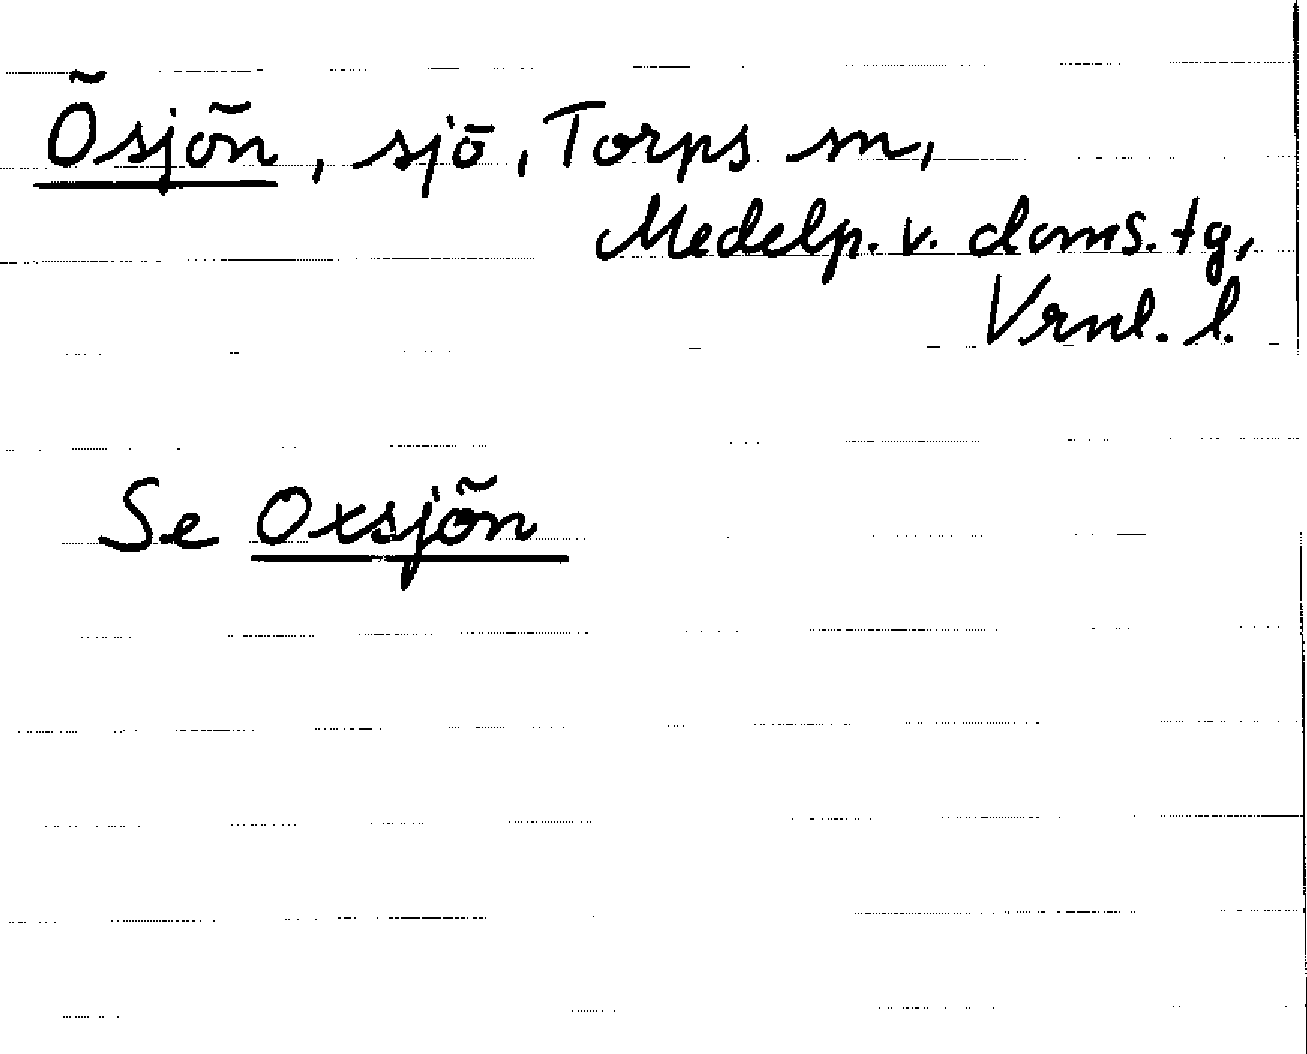 Ösjön, sjö, Torps sn,
Medelp. v. doms. tg,
Vrnl. l.
Se Oxsjön